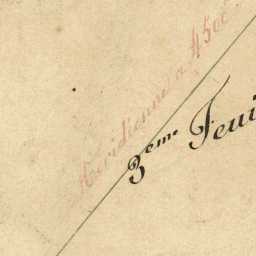 Méridienne à 4500
3eme Feui